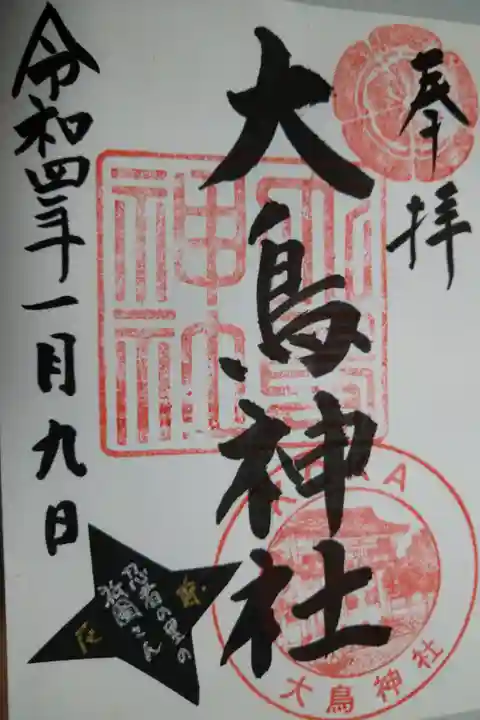 奉拝
大鳥神社
令和四年一月九日
神社
大鳥神社
忍者の里の
祇園さん